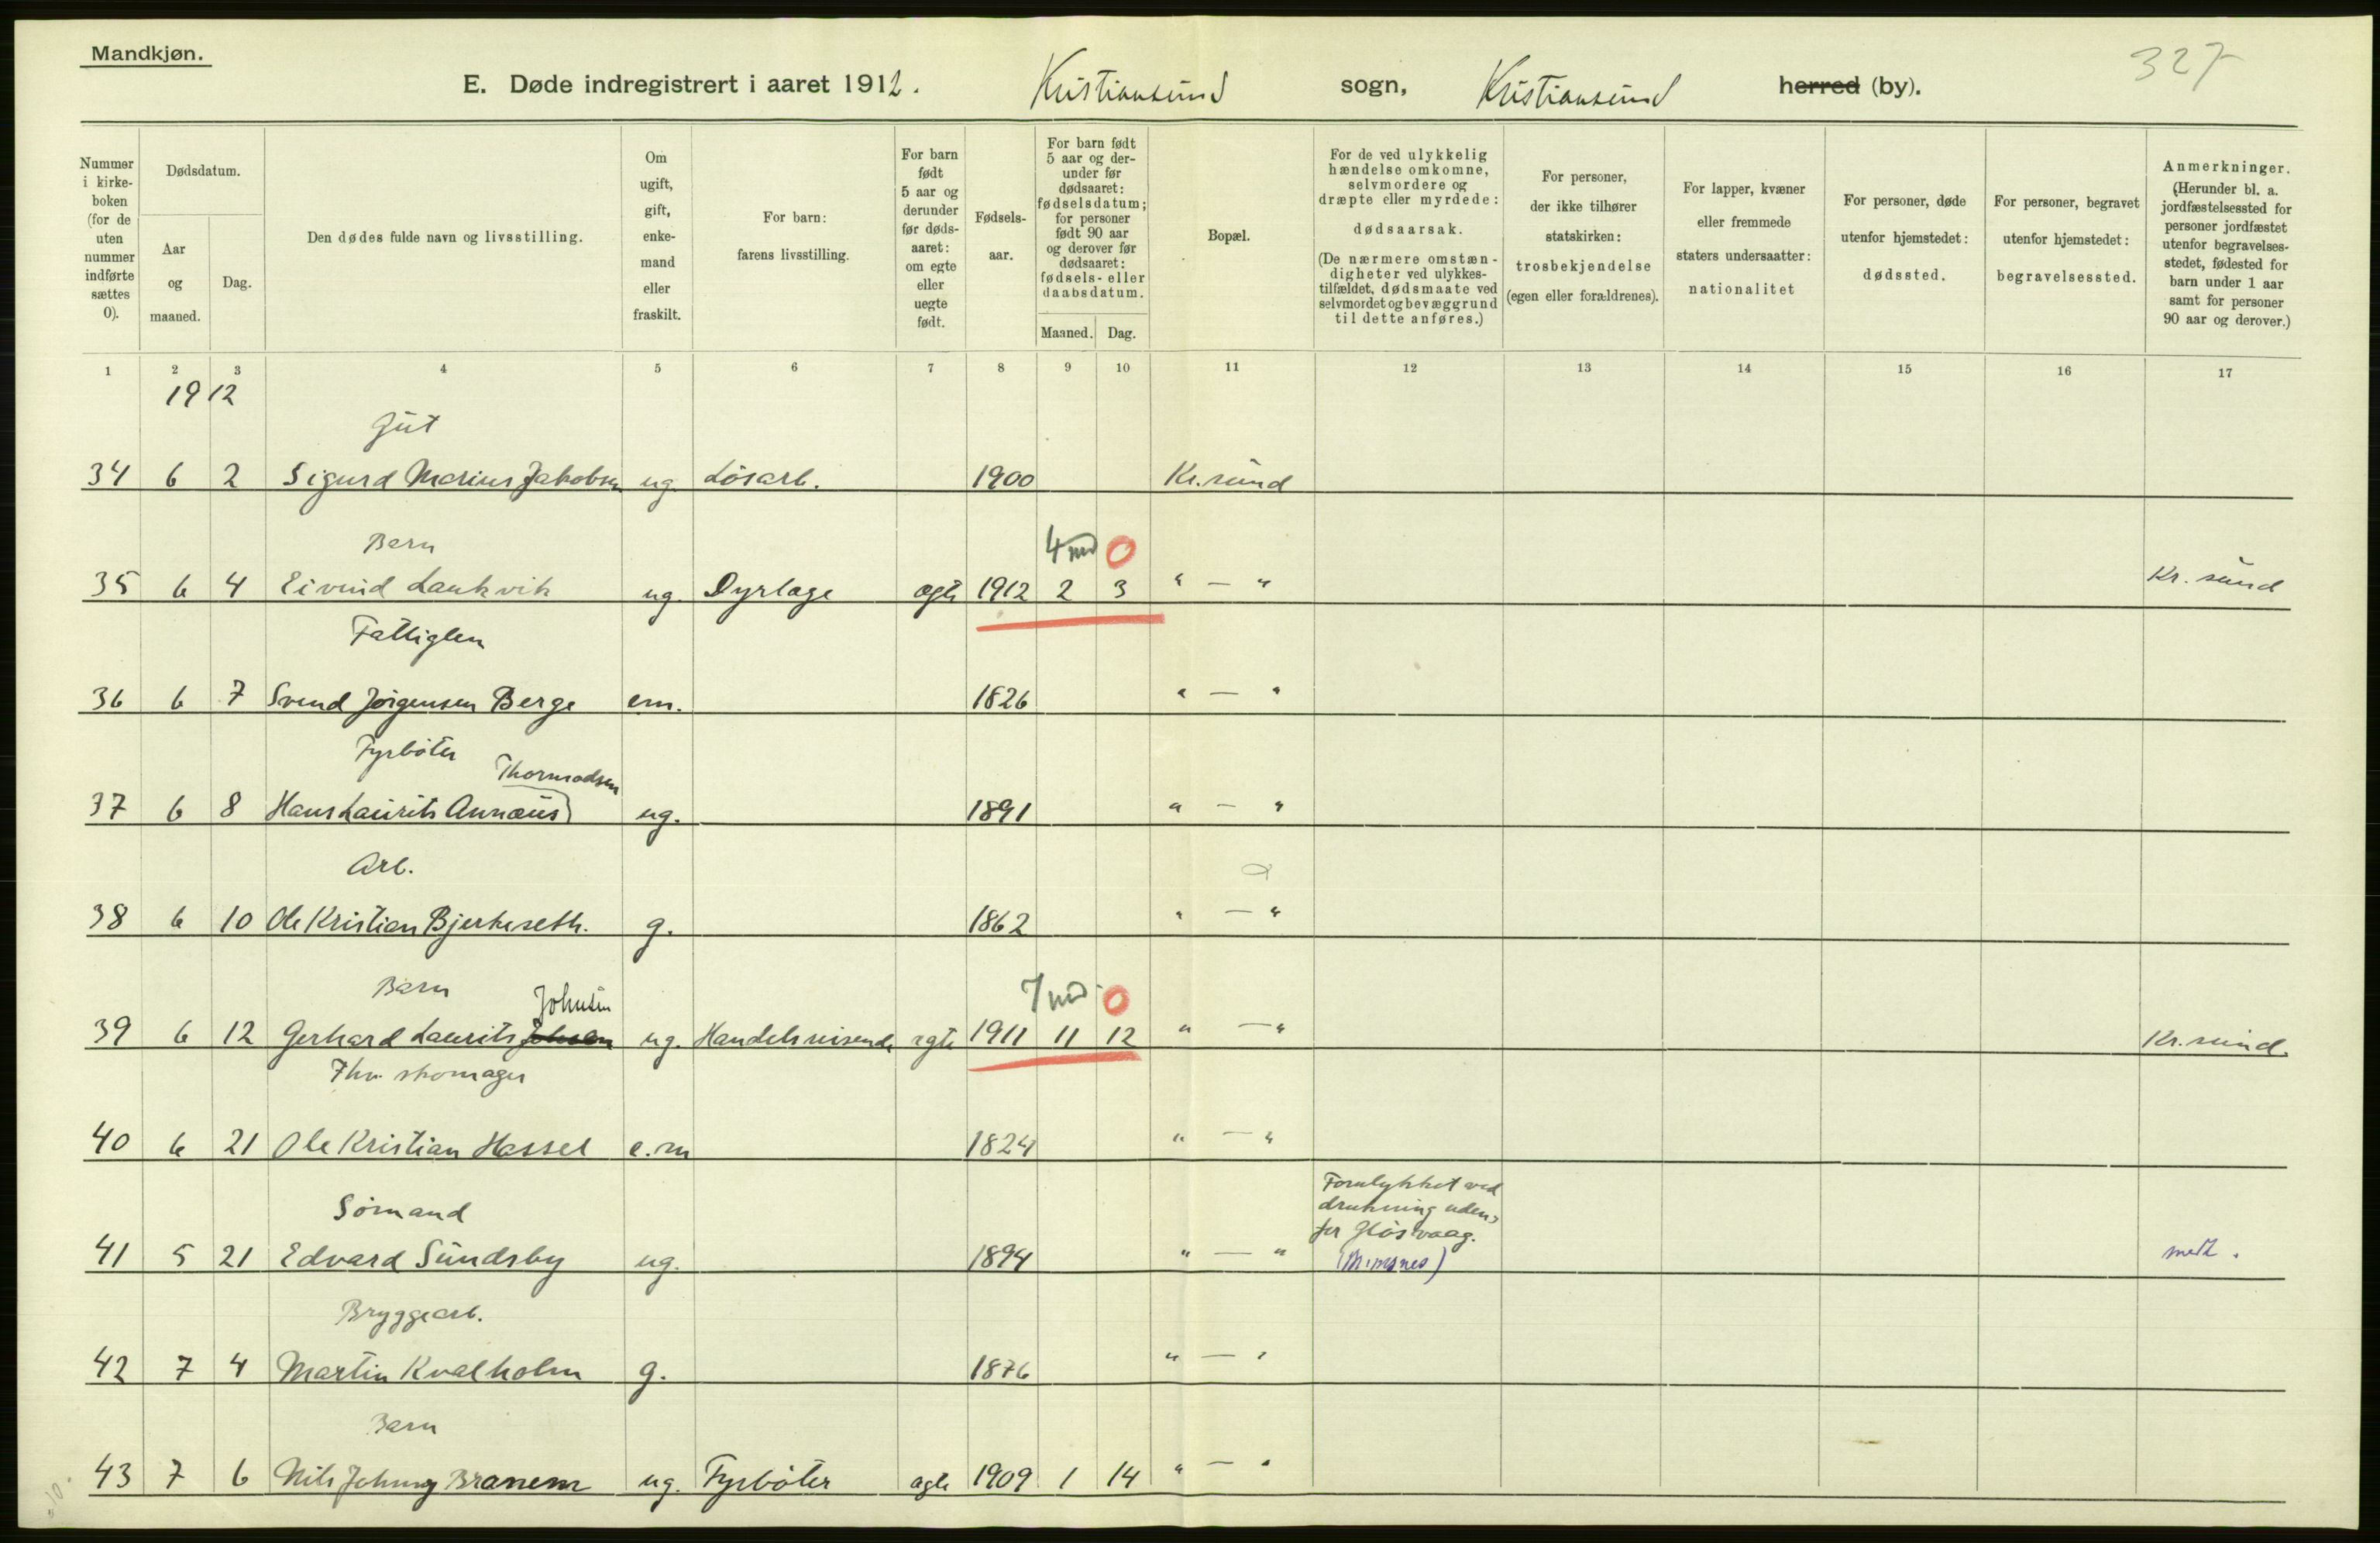 Mandkjøn.
327
E. Døde indregistrert i aaret 1912. Kristiansund sogn, Kristiansund herred (by).
Nummer i kirke-boken (for de uten nummer indførte sættes 0).
Dødsdatum.
Aar og maaned.
Dag.
Den dødes fulde navn og livsstilling.
Om ugift, gift, enke-mand eller fraskilt.
For barn: farens livsstilling.
For barn født 5 aar og derunder før døds-aaret: om egte eller uegte født.
Fødsels-aar.
For barn født 5 aar og der-under før dødsaaret: fødselsdatum; for personer født 90 aar og derover før dødsaaret: fødsels- eller daabsdatum.
Maaned. Dag.
Bopæl.
For de ved ulykkelig hændelse omkomne, selvmordere og dræpte eller myrdede: dødsaarsak. (De nærmere omstæn-digheter ved ulykkes-tilfældet, dødsmaate ved selvmordet og bevæggrund til dette anføres.)
For personer, der ikke tilhører statskirken: trosbekjendelse (egen eller forældrenes).
For lapper, kvæner eller fremmede staters undersaatter: nationalitet
For personer, døde utenfor hjemstedet: dødssted.
For personer, begravet utenfor hjemstedet: begravelsessted.
Anmerkninger. (Herunder bl. a. jordfæstelsessted for personer jordfæstet utenfor begravelses-stedet, fødested for barn under 1 aar samt for personer 90 aar og derover.)
1 2 3 4 5 6 7 8 9 10 11 12 13 14 15 16 17
1912
Gut
34 6 2 Sigurd Marius Jakobsen ug. Løsarb. 1900 Kr.sund
Barn 4 md 0
35 6 4 Eivind Lankvik ug. Dyrlæge ægte 1912 2 3 " — " Kr. sund
Fattiglem
36 6 7 Svend Jørgensen Berge em. 1826 " — "
Fyrbøter Thormodsen
37 6 8 Hans Laurits Annæus ug. 1891 " — "
Arb.
38 6 10 Ole Kristian Bjerkeseth. g. 1862 " — "
Barn Johnsen 7 md. 0
39 6 12 Gerhard Laurits ug. Handelsreisende ægte 1911 11 12 " — " Kr.sund.
Fhv. skomager
40 6 21 Ole Kristian Hassel e.m 1824 " — "
Sømand
Forulykket ved
drukning uden-
for Gløsvaag.
41 5 21 Edvard Sundsby ug. 1894 " — " medt.
Bryggearb.
42 7 4 Martin Kvalholm g. 1876 " — "
Barn
43 7 6 Nils Johnny Branem ug. Fyrbøter ægte 1909 1 14 " — "